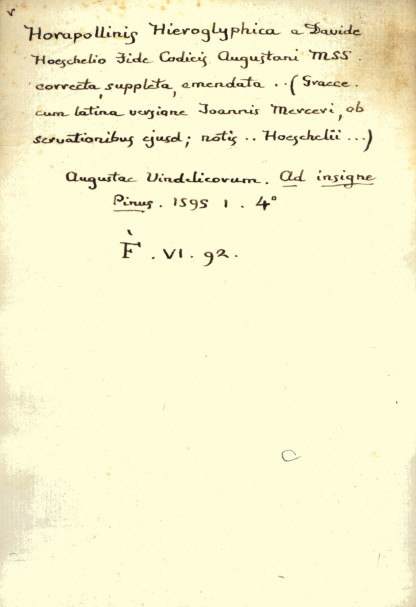 Horapollinis Hieroglyphica a Davide
Hoeschelio Fide Codicis Augustani MSS.
correcta, suppleta, emendata .. (Graece.
cum latina versione Joannis Merceri, ob
servationibus ejusd; notis .. Hoeschelii ...)
Augustae Vindelicorum. Ad insigne
Pinus. 1595 1. 4°
F. VI. 92.